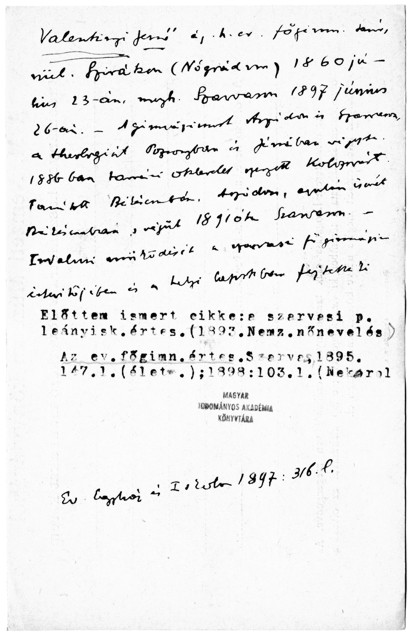 Valentinyi Jenő ág. h. ev. főgimn. tanár,
szül. Szirákon (Nógrád m) 1860 jú-
lius 23-án, megh. Szarvason 1897 június
26-án. – A gimnáziumot Aszódon és Szarvason,
a theologiát Pozsonyban és Jénában végezte.
1886 ban tanári oklevelet szerzett Kolozsvárt.
Tanított Békéscsabán, Aszódon, azután ismét
Békéscsabán, végül 1891 óta Szarvason. –
Irodalmi működését a szarvasi főgimnázium
értesítőjében és a helyi lapokban fejtette ki
Előttem ismert cikke:a szarvasi p.
leányisk.értes.(1893.Nemz.nőnevelés)
Az ev.főgimn.értes.Szarvas,1895.
147.l.(életr.);1898:103.l.(Nekrol
MAGYAR
TUDOMÁNYOS AKADÉMIA
KÖNYVTÁRA
Ev. Egyház és Iskola 1897: 316. l.